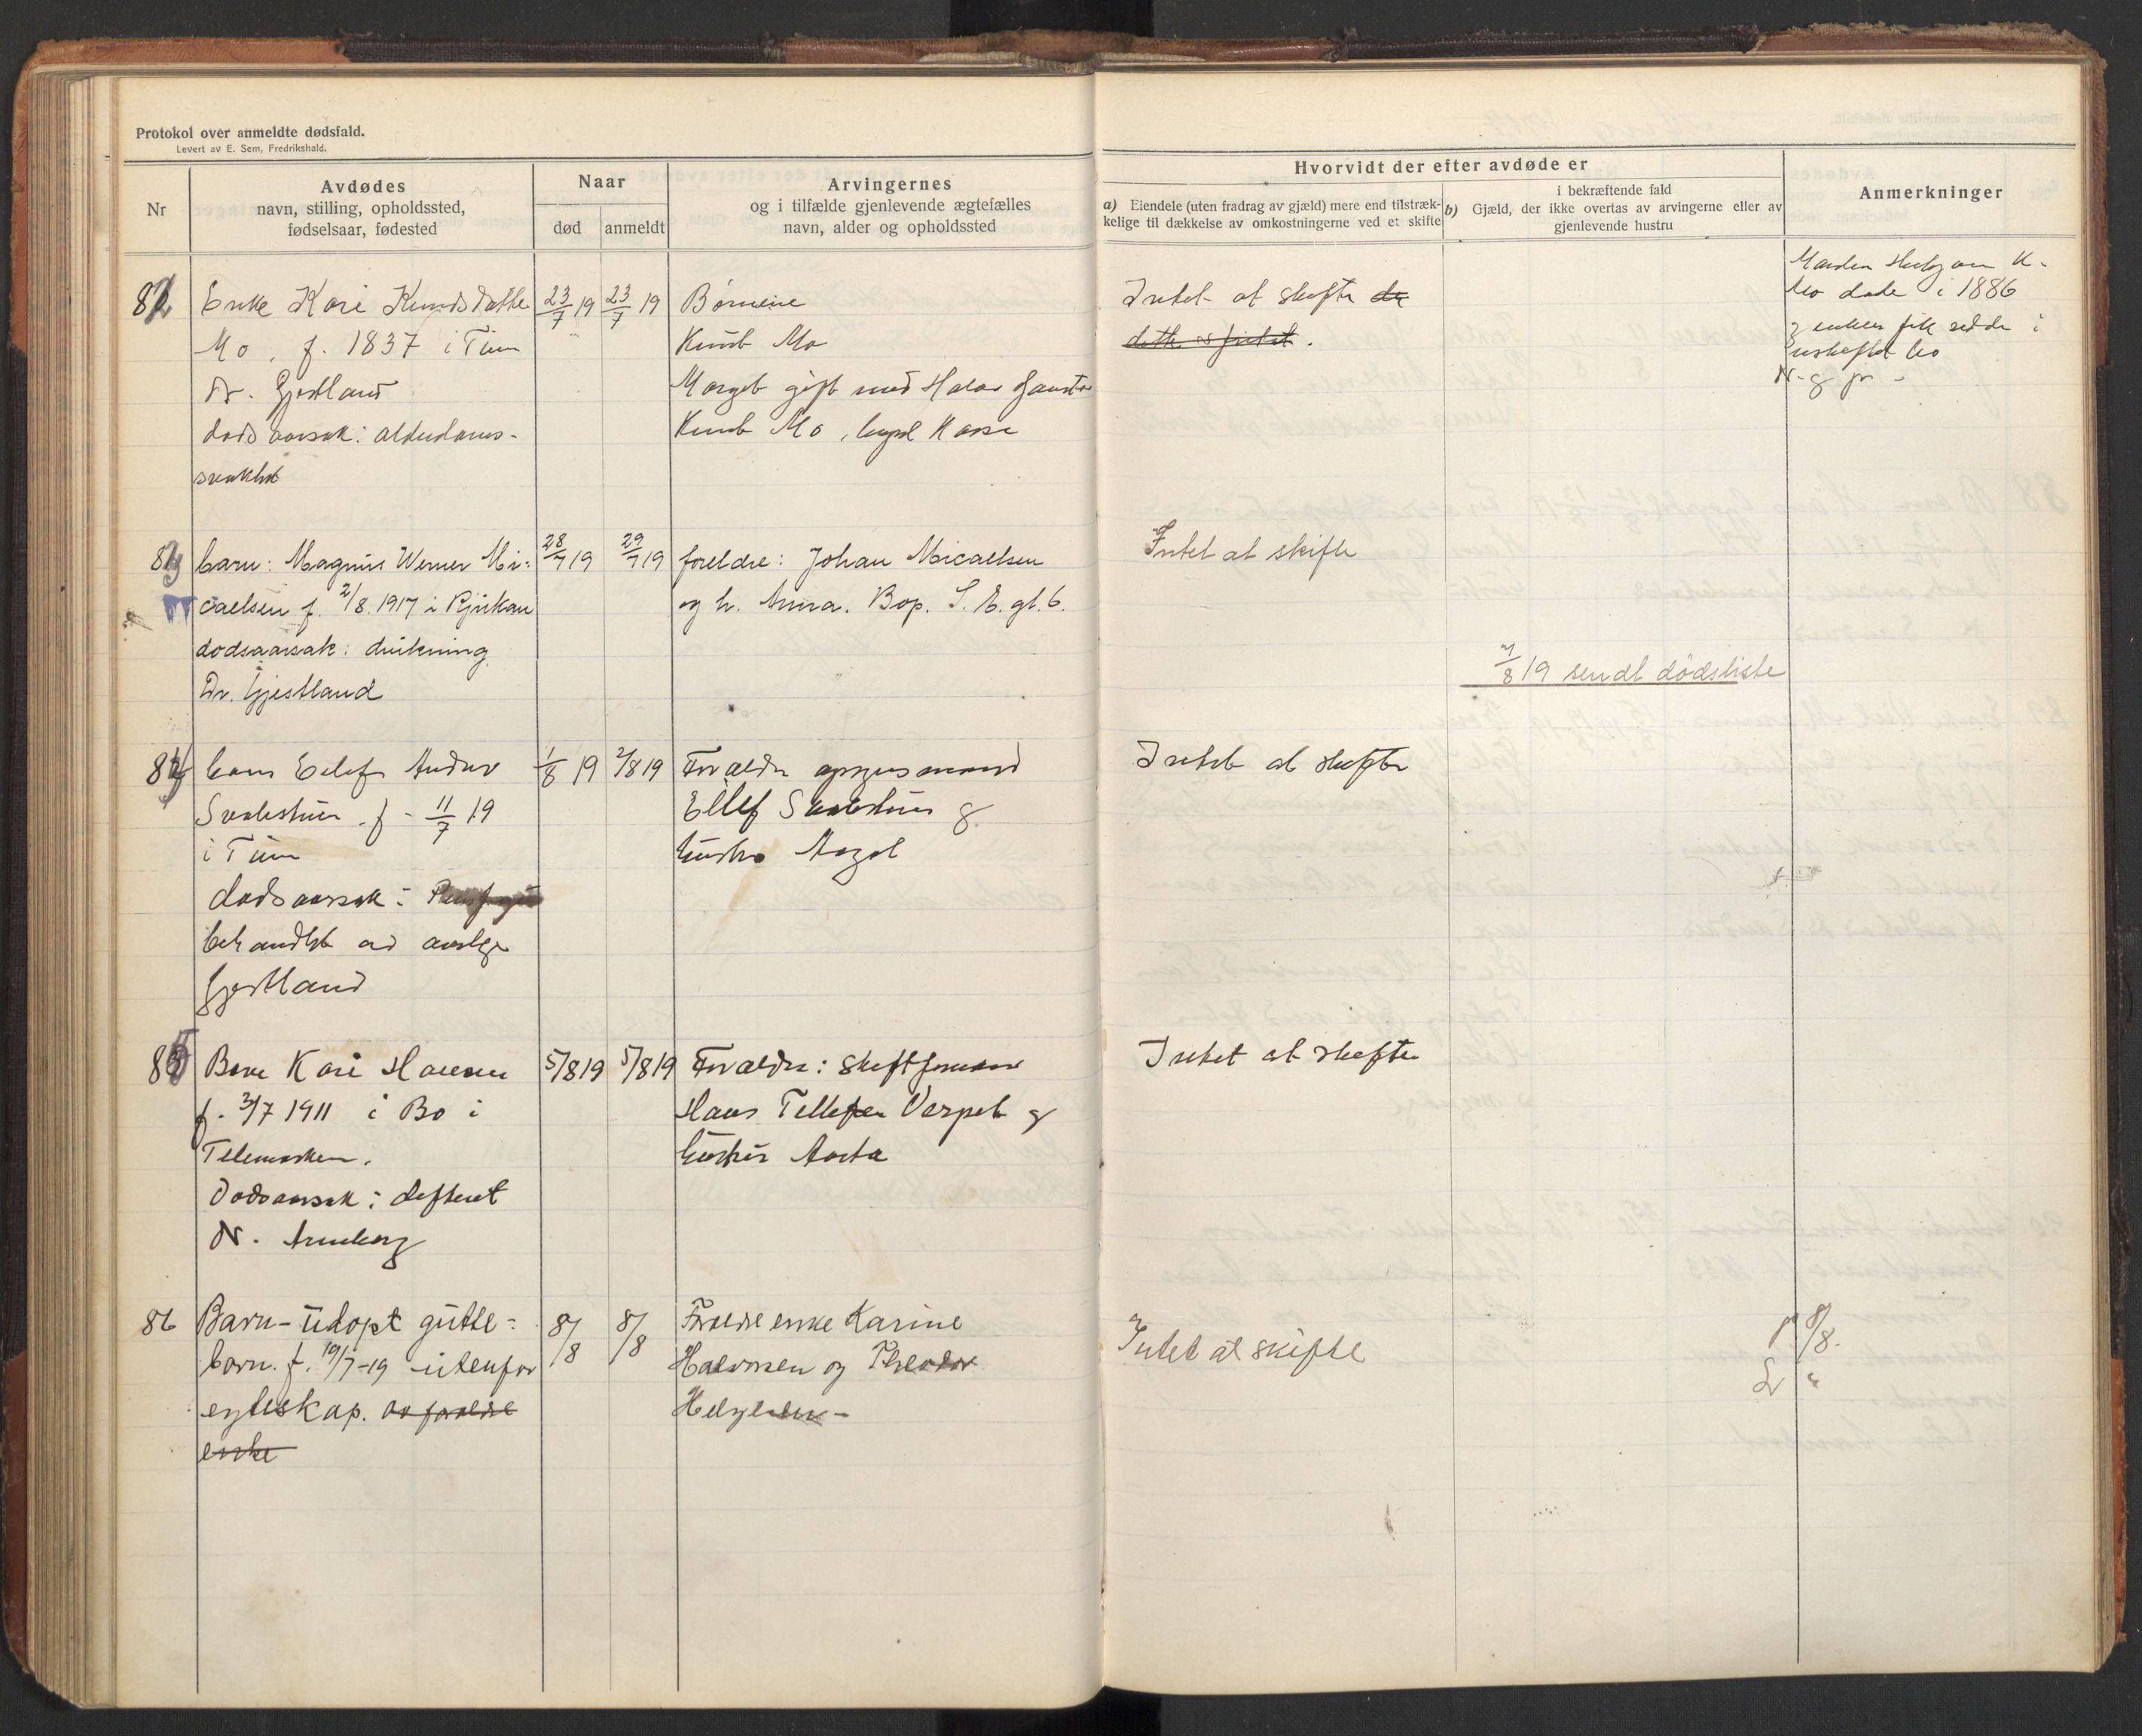 Protokol over anmeldte dødsfald.
Levert av E. Sem, Fredrikshald.
Nr
Avdødes
navn, stilling, opholdssted,
fødselsaar, fødested
Naar
død
anmeldt
Arvingernes
og i tilfælde gjenlevende ægtefælles
navn, alder og opholdssted
Hvorvidt der efter avdøde er
a) Eiendele (uten fradrag av gjæld) mere end tilstræk-
kelige til dækkelse av omkostningerne ved et skifte
i bekræftende fald
b) Gjæld, der ikke overtas av arvingerne eller av
gjenlevende hustru
Anmerkninger
82
Enke Kari Knudsdatter
Mo, f. 1837 i Tinn
Dr. Gjestland
dødsaarsak: alderdoms-
svakhet
23/7 19
23/7 19
Børnene
Knut Mo
Marget gift med Halvor
Knut Mo
Intet at skifte
Manden
Mo døde i 1886
83
barn: Magnus Werner Mi-
caelsen f. 2/8. 1917 i Rjukan
dødsaarsak: drukning
Dr. Gjestland
28/7 19
29/7 19
foreldre: Johan Micaelsen
og h. Anna. Bop. S. E. gt. 6.
Intet at skifte
7/8 19 sendt dødsliste
84
barn Eilef Andur
f. 11/7 19
i Tinn
dødsaarsak:
behandlet av
Gjestland
1/8 19
2/8 19
Forældre opsynsmand
Ellef
hustru
Intet at skifte
85
Barn Kari Hansen
f. 3/7 1911 i Bø i
Telemarken.
Dødsaarsak: difterit
Dr. Arneberg
5/8 19
5/8 19
Forældre: Skiftformann
Hans Tellefsen Verpet og
hustru Aasta
Intet at skifte
86
Barn - udøpt gutte-
barn. f. 19/7-19 utenfor
egteskap. av forældre
enke
8/8
8/8
Forældre enke Karine
Halvorsen og Theodor
Helgesen -
Intet at skifte
8/8.